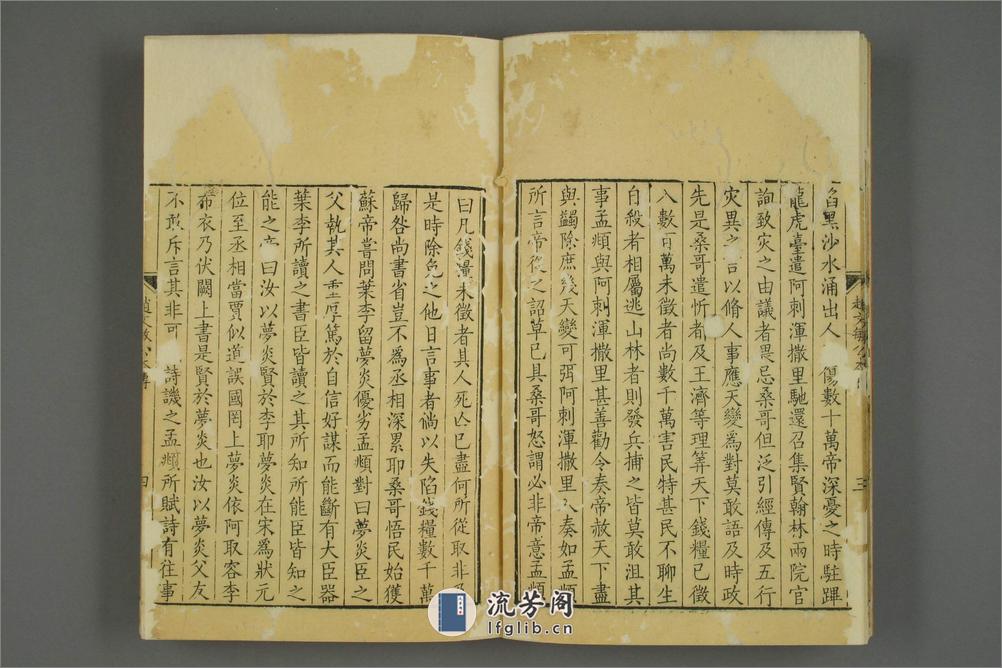 陷黑沙水涌出人傷數十萬帝深憂之時駐蹕
龍虎臺遣阿剌渾撒里馳還召集賢翰林兩院官
詢致灾之由議者畏忌桑哥但泛引經傳及五行
灾異之言以脩人事應天變爲對莫敢語及時政
先是桑哥遣忻者及王濟等理筭天下錢糧已徵
入數百萬未徵者尚數千萬害民特甚民不聊生
自殺者相屬逃山林者則發兵捕之皆莫敢沮其
事孟頫與阿剌渾撒里甚善勸令奏帝赦天下盡
與蠲除庶幾天變可弭阿剌渾撒里入奏如孟頫
所言帝從之詔草已具桑哥怒謂必非帝意孟頫
三
曰凡錢糧未徵者其人死亡已盡何所從取非
是時除免之他日言事者倘以失陷錢糧數千萬
歸咎尚書省豈不爲丞相深累耶桑哥悟民始獲
蘇帝嘗問葉李留夢炎優劣孟頫對曰夢炎臣之
父執其人重厚篤於自信好謀而能斷有大臣器
葉李所讀之書臣皆讀之其所知所能臣皆知之
能之帝曰汝以夢炎賢於李耶夢炎在宋爲狀元
位至丞相當賈似道誤國罔上夢炎依阿取容李
布衣乃伏闕上書是賢於夢炎也汝以夢炎父友
不敢斥言其非可詩譏之孟頫所賦詩有往事
四
流芳阁
lfglib.cn